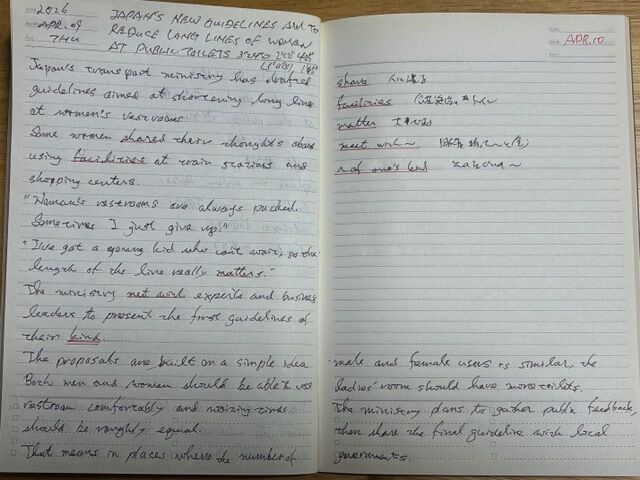 2026
APR. 09
THU
JAPAN'S NEW GUIDELINES AIM TO
REDUCE LONG LINES OF WOMEN
AT PUBLIC TOILETS
Japan's transport ministry has drafted
guidelines aimed at shortening long lines
at women's restrooms
Some women shared their thoughts about
using facilities at train stations and
shopping centers.
"Woman's restrooms are always packed.
Sometimes I just give up."
"I've got a young kid who can't wait, so the
length of the line really matters."
The ministry met with experts and business
leaders to present the first guidelines of
their kind.
The proposals are built on a simple idea
Both men and women should be able to use
restroom comfortably and waiting times
should be roughly equal.
That means in places where the number of
APR. 10
share
facilities
matter
meet with~
of one's kind
male and female users is similar, the
ladies' room should have more toilets.
The ministry plans to gather public feedback,
then share the final guideline with local
goverments.